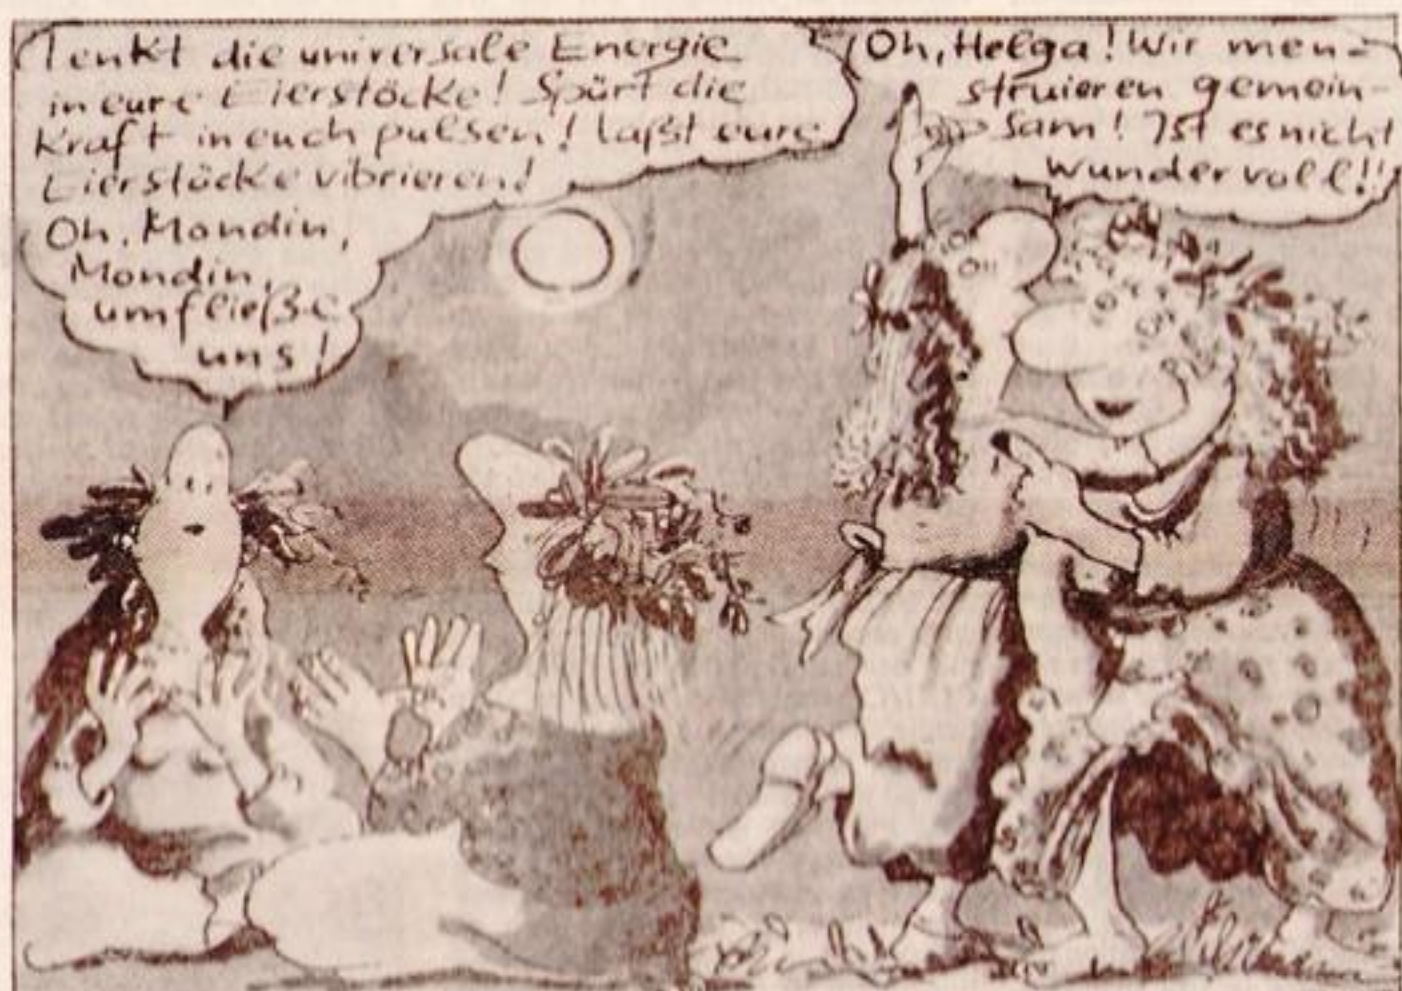 lenkt die universale Energie
in eure Eierstöcke! Spürt die
Kraft in euch pulsen! laßt eure
Eierstöcke vibrieren!
Oh, Mondin,
Mondin,
umfließe
uns!
Oh, Helga! Wir men-
struieren gemein-
sam! Ist es nicht
wundervoll!!